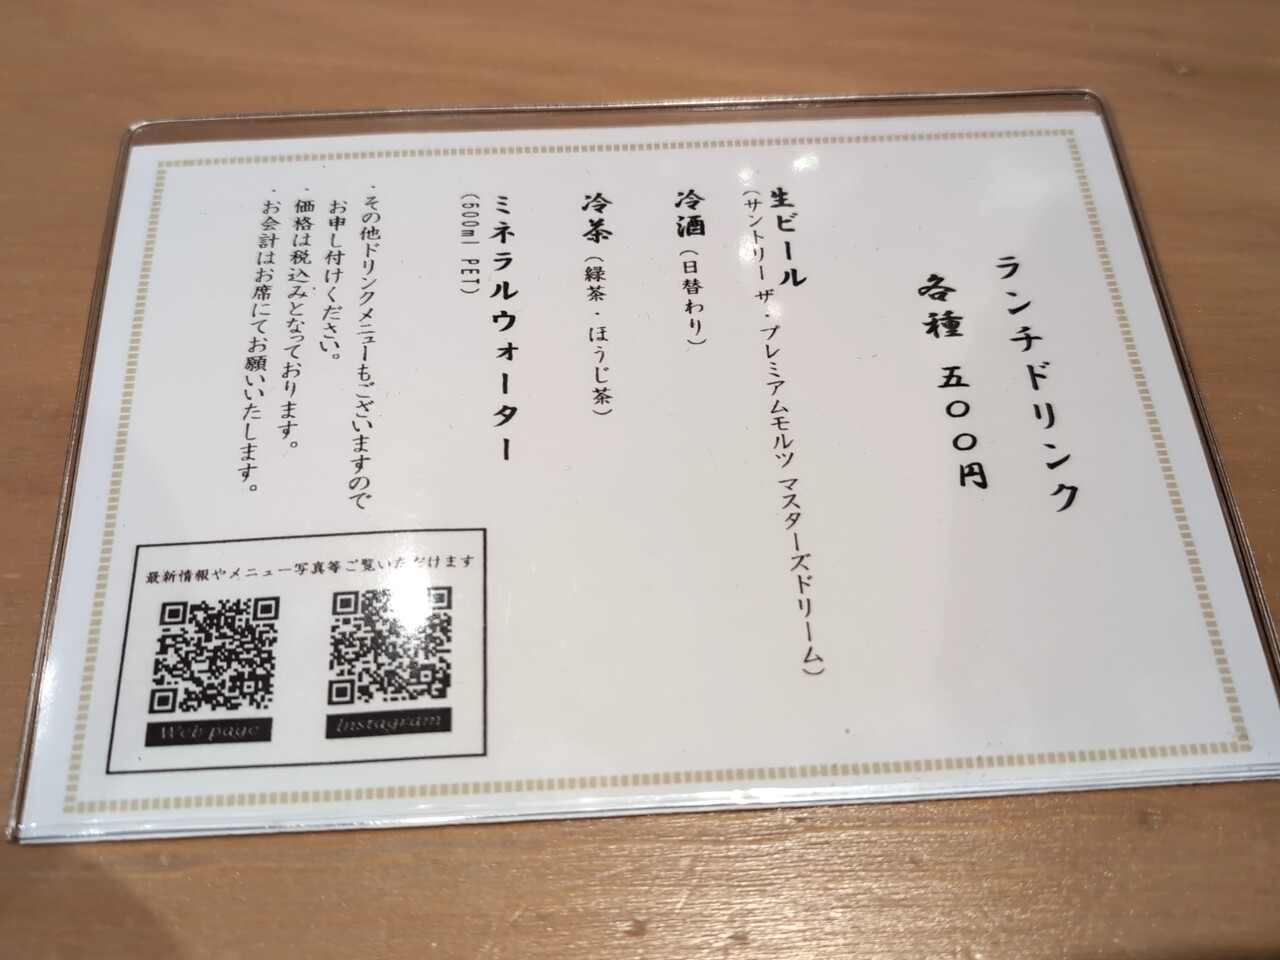 ランチドリンク
各種 五〇〇円
生ビール
(サントリー ザ・プレミアムモルツ マスターズドリーム)
冷酒(日替わり)
冷茶(緑茶・ほうじ茶)
ミネラルウォーター
(500ml PET)
・その他ドリンクメニューもございますので
お申し付けください。
・価格は税込みとなっております。
・お会計はお席にてお願いいたします。
最新情報やメニュー写真等ご覧いただけます
Web page
Instagram